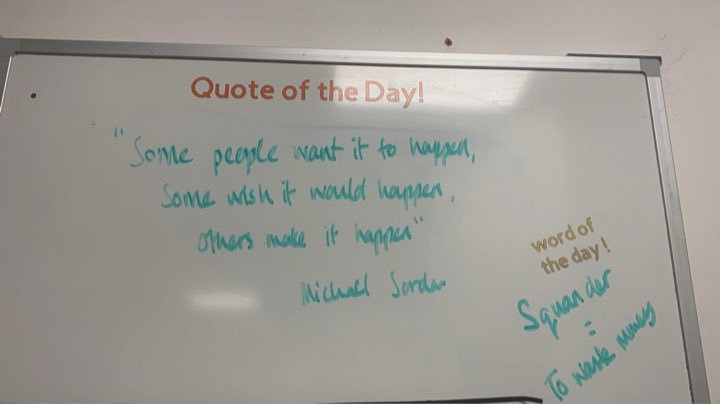 Quote of the Day!
"Some people want it to happen,
Some wish it would happen,
others make it happen"
Michael Jordan
word of
the day!
Squander
=
To waste money